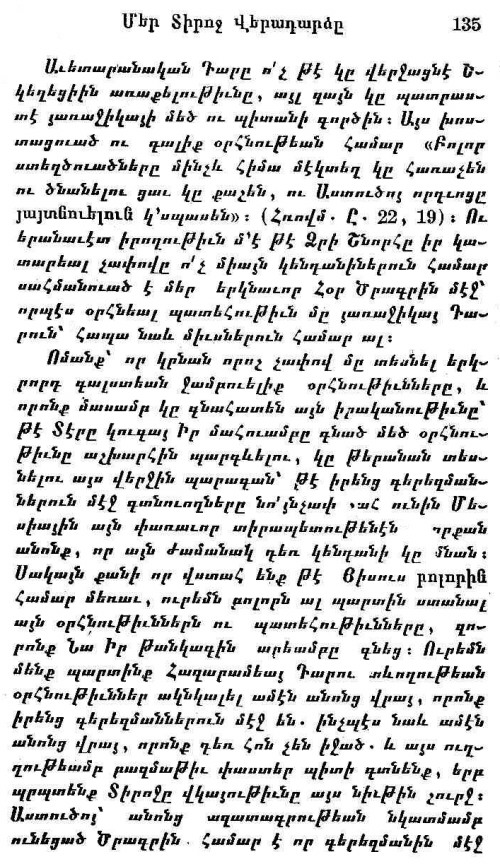 Մեր Տիրոջ Վերադարձը 135
Աւետարանական Դարը ո՛չ թէ կը վերջացնէ Ե-
կեղեցիին առաքելութիւնը, այլ զայն կը պատրաս-
տէ յառաջիկայի մեծ ու պիտանի գործին։ Այս խոս-
տացուած ու գալիք օրհնութեան համար «Բոլոր
ստեղծուածները մինչև հիմա մէկտեղ կը հառաչեն
ու ծնանելու ցաւ կը քաշեն, ու Աստուծոյ որդւոցը
յայտնուելուն կ՚սպասեն»։ (Հռովմ. Ը. 22, 19)։ Ու
երանաւէտ իրողութիւն մ՚է թէ Ձրի Շնորհը իր կա-
տարեալ չափովը ո՛չ միայն կենդանիներուն համար
սահմանուած է մեր երկնաւոր Հօր Ծրագրին մէջ՝
որպէս օրհնեալ պատեհութիւն մը յառաջիկայ Դա-
րուն՝ հապա նաև միւսներուն համար ալ։
Ոմանք՝ որ կրնան որոշ չափով մը տեսնել երկ-
րորդ գալստեան ջամբուելիք օրհնութիւնները, և
որոնք մասամբ կը գնահատեն այն իրականութիւնը՝
թէ Տէրը կուգայ Իր մահուամբը գնած մեծ օրհնու-
թիւնը աշխարհին պարգևելու, կը թերանան տես-
նելու այս վերջին պարագան՝ թէ իրենց գերեզման-
ներուն մէջ գտնուողները նո՛յնչափ շահ ունին Մե-
սիային այն փառաւոր տիրապետութենէն որքան
անոնք, որ այն ժամանակ դեռ կենդանի կը մնան։
Սակայն քանի որ վստահ ենք թէ Յիսուս բոլորին
համար մեռաւ, ուրեմն բոլորն ալ պարտին ստանալ
այն օրհնութիւններն ու պատեհութիւնները, զո-
րոնք Նա Իր թանկագին արեամբը գնեց։ Ուրեմն
մենք պարտինք Հազարամեայ Դարու տևողութեան
օրհնութիւններ ակնկալել ամէն անոնց վրայ, որոնք
իրենց գերեզմաններուն մէջ են. ինչպէս նաև ամէն
անոնց վրայ, որոնք դեռ հոն չեն իջած. և այս ուղ-
ղութեամբ բազմաթիւ փաստեր պիտի գտնենք, երբ
պրպտենք Տիրոջը վկայութիւնը այս նիւթին շուրջ։
Աստուծոյ՝ անոնց ազատագրութեան նկատմամբ
ունեցած Ծրագրին համար է որ գերեզմանին մէջ